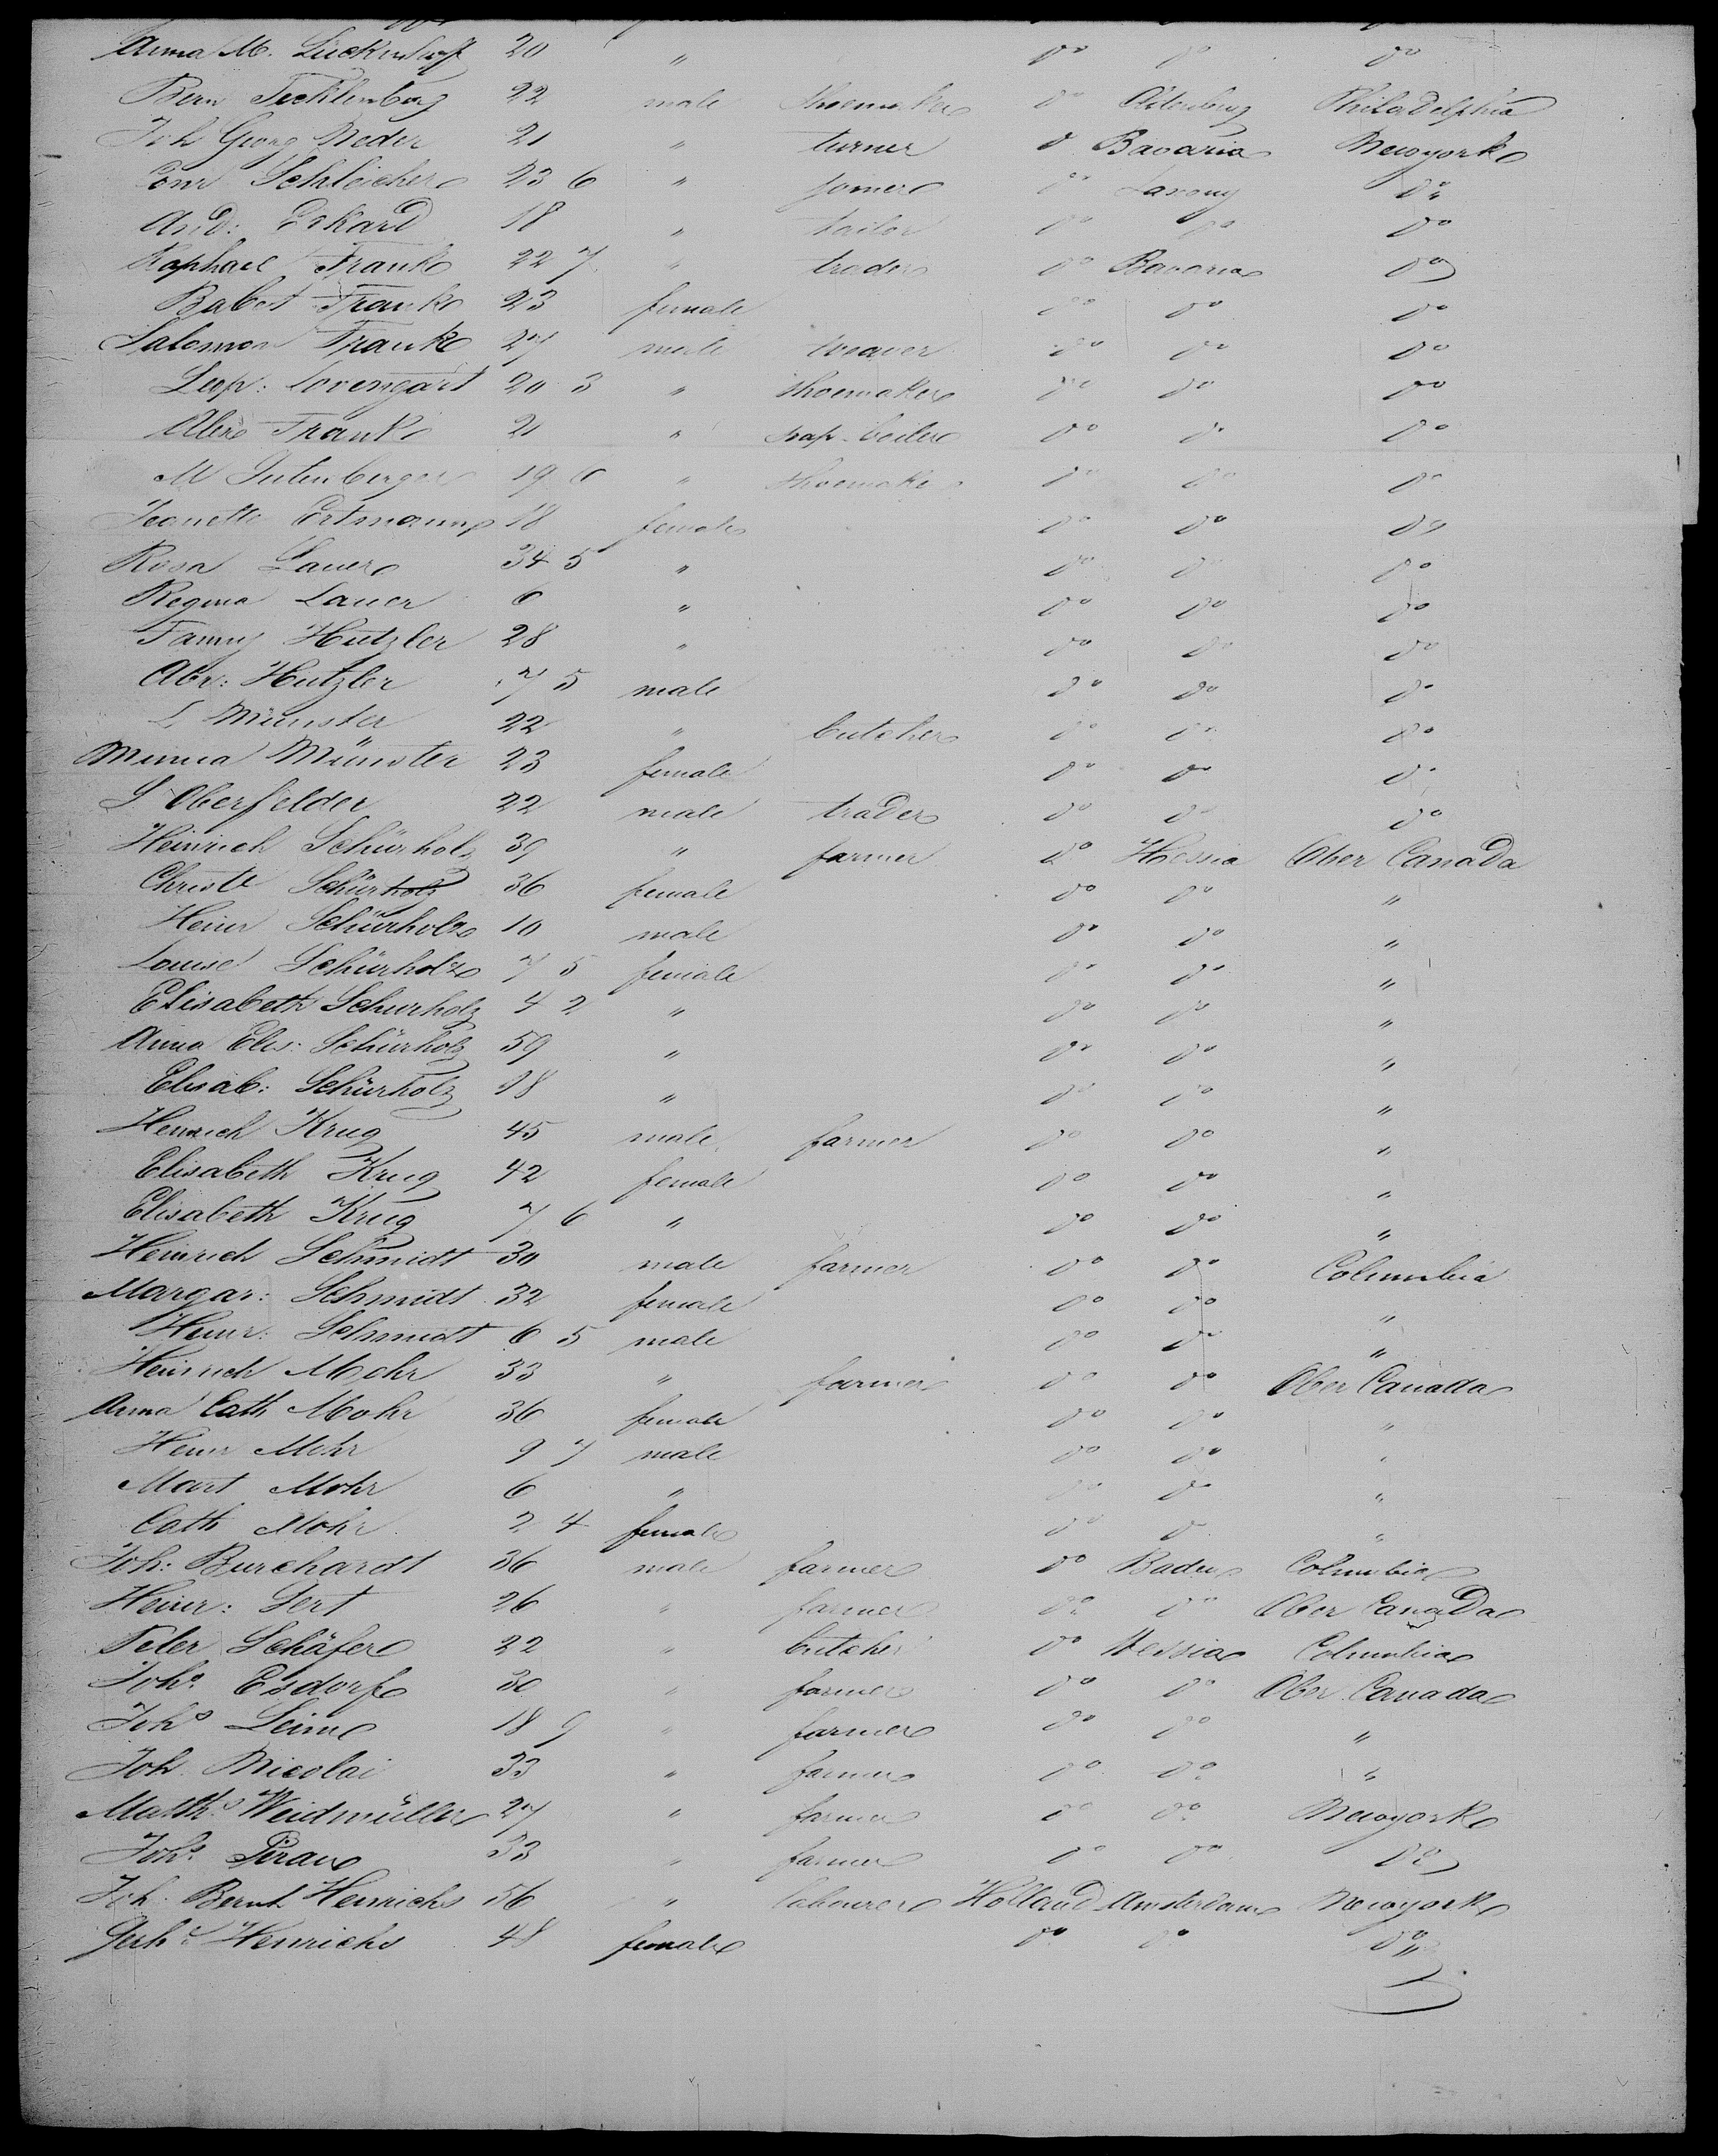 Anna M. Lückenhoff 20 " do do do
Bern Tecklenborg 22 male shoemaker do Oldenburg Philadelphia
Joh Georg Neder 21 " turner do Bavaria Newyork
Conr Schleicher 23 6 " joiner do Saxony do
And: Erkard 18 " tailor do do do
Raphael Frank 22 7 " trader do Bavaria do
Babet Frank 23 female do do do
Salomon Frank 27 male weaver do do do
Leop: Lovengart 20 3 " shoemaker do do do
Alex Frank 21 " soap-boiler do do do
M Gutenberger 19 6 " shoemaker do do do
Jeanette Ortmann 18 female do do do
Rosa Lauer 34 5 " do do do
Regina Lauer 6 " do do do
Fanny Hutzler 28 " do do do
Abr: Hutzler 7 5 male do do do
L Münster 22 " butcher do do do
Minna Münster 23 female do do do
S Oberfelder 22 male trader do do do
Heinrich Schürholz 39 " farmer do Hessia Ober Canada
Christe Schürholz 36 female do do "
Heinr Schürholz 10 male do do "
Louise Schürholz 7 5 female do do "
Elisabeth Schurholz 4 2 " do do "
Anna Elis: Schürholz 59 " do do "
Elisab: Schürholz 18 " do do "
Heinrich Krug 45 male farmer do do "
Elisabeth Krug 42 female do do "
Elisabeth Krug 7 6 " do do "
Heinrich Schmidt 30 male farmer do do Columbia
Margar: Schmidt 32 female do do "
Heinr: Schmidt 6 5 male do do "
Heinrich Mohr 33 " farmer do do Ober Canada
Anna Cath Mohr 36 female do do "
Heinr Mohr 9 7 male do do "
Mart Mohr 6 " do do "
Cath Mohr 2 4 female do do "
Joh: Burchardt 36 male farmer do Baden Columbia
Heinr: Gert 26 " farmer do do Ober Canada
Peter Schäfer 22 " butcher do Hessia Columbia
Johs Esdorf 30 " farmer do do Ober Canada
Johs Leim 18 9 " farmer do do "
Joh. Nicolai 33 " farmer do do "
Matths Weidmüller 27 " farmer do do Newyork
Johs Pirau 33 " farmer do do do
Joh. Bernh Henrichs 56 " labourer Holland Amsterdam Newyork
Gerhd Henrichs 48 female do do do